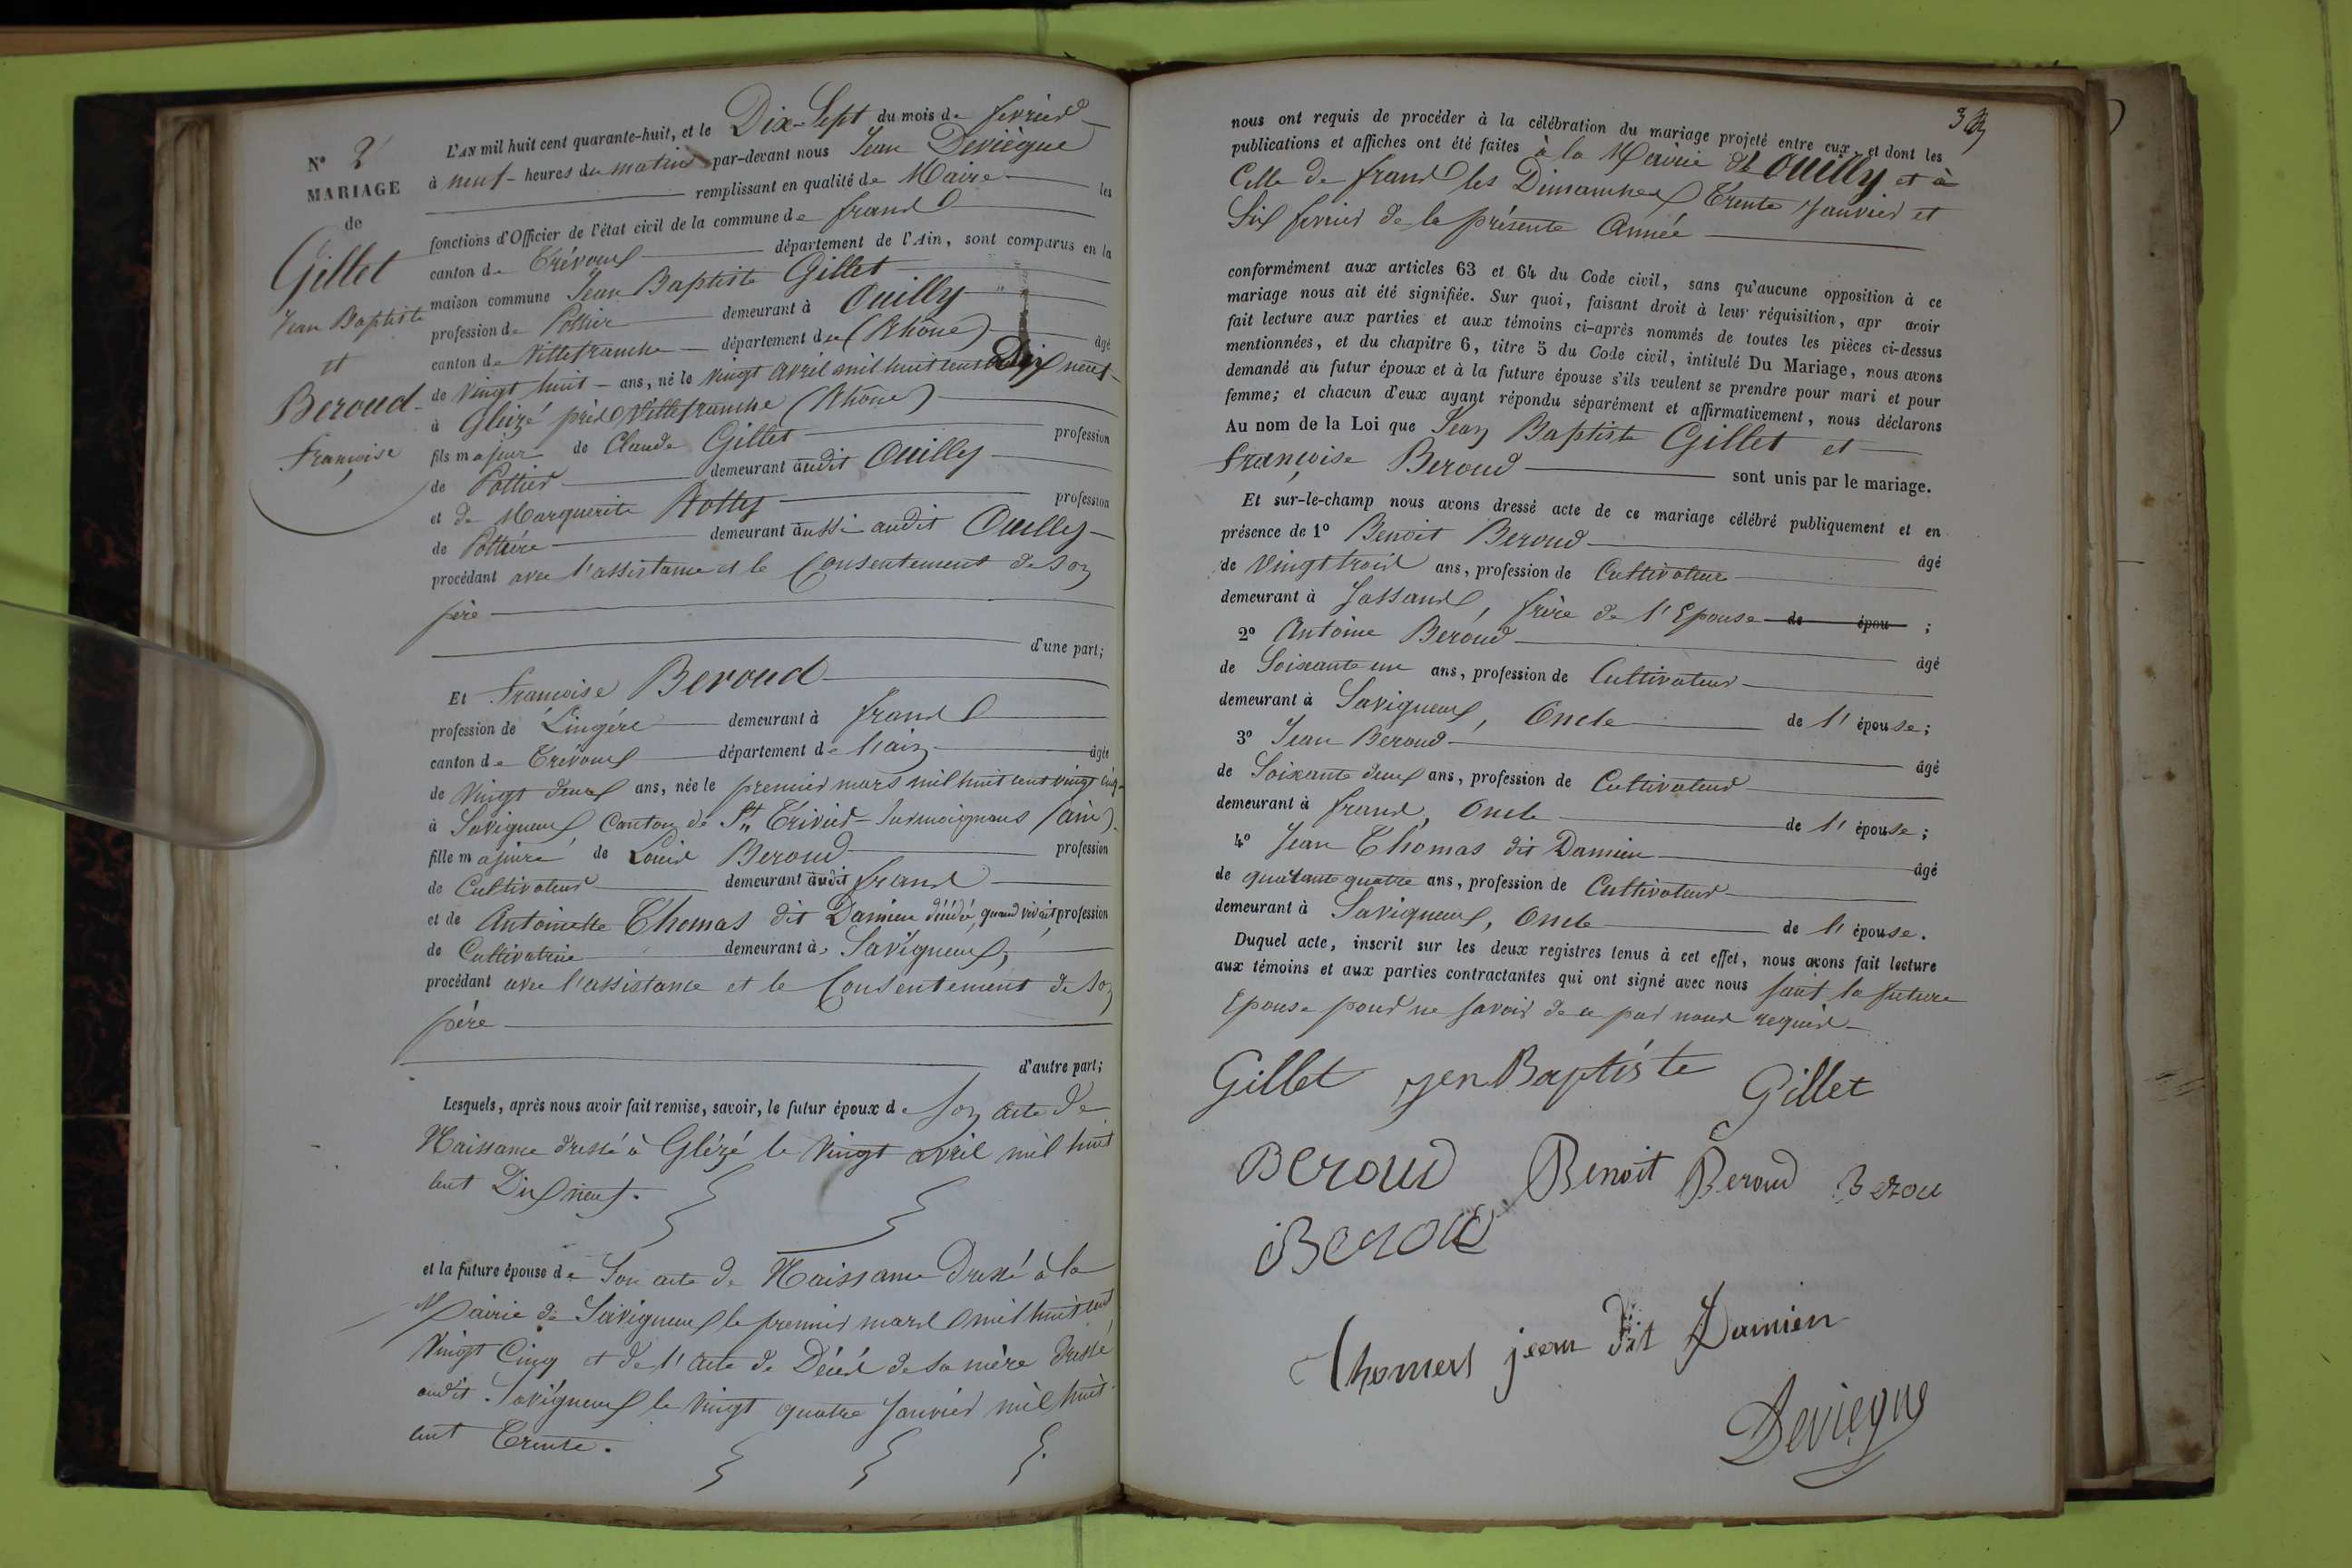 N° 2
MARIAGE
de
Gillet
Jean Baptiste
et
Beroud
Françoise
L'AN mil huit cent quarante-huit, et le Dix-Sept du mois de fevrier
à neuf heures du matin par-devant nous Jean Deviègue
remplissant en qualité de Maire les
fonctions d'Officier de l'état civil de la commune de frans
canton de Trévoux département de l'Ain, sont comparus en la
maison commune Jean Baptiste Gillet
profession de Pottier demeurant à Ouilly
canton de Villefranche département du (Rhône) âgé
de Vingt huit ans, né le vingt avril mil huit cent Dix neuf
à Gleizé près Villefranche (Rhône)
fils majeur de Claude Gillet profession
de Pottier demeurant audit Ouilly
et de Marguerite profession
de Pottière demeurant aussi audit Ouilly
procédant avec l'assistance et le Consentement de son
père
d'une part;
Et françoise Beroud
profession de Lingère demeurant à frans
canton de Trévoux département de l'ain âgée
de Vingt deux ans, née le premier mars mil huit cent vingt cinq
à Savigneux Canton de St Trivier-Surmoignans (ain)
fille majeure de Louis Beroud profession
de Cultivateur demeurant audit frans
et de Antoinette Thomas dit Damien décédé, quand vivait profession
de Cultivatrice demeurant à Savigneux,
procédant avec l'assistance et le Consentement de son
père
d'autre part;
Lesquels, après nous avoir fait remise, savoir, le futur époux de son acte de
Naissance dressé à Glézé le Vingt avril mil huit
cent Dix neuf.
et la future épouse de Son acte de Naissance Dressé à la
Mairie de Savigneux le premier mars mil huit cent
Vingt Cinq et de l'acte de Décès de sa mère dressé
audit Savigneux le vingt quatre Janvier mil huit
cent Trente.
nous ont requis de procéder à la célébration du mariage projeté entre eux, et dont les
publications et affiches ont été faites à la Mairie de Ouilly et à
Celle de frans les Dimanches Trente Janvier et
Six fevrier de la présente Année
conformément aux articles 63 et 64 du Code civil, sans qu'aucune opposition à ce
mariage nous ait été signifiée. Sur quoi, faisant droit à leur réquisition, apr avoir
fait lecture aux parties et aux témoins ci-après nommés de toutes les pièces ci-dessus
mentionnées, et du chapitre 6, titre 5 du Code civil, intitulé Du Mariage, nous avons
demandé au futur époux et à la future épouse s'ils veulent se prendre pour mari et pour
femme; et chacun d'eux ayant répondu séparément et affirmativement, nous déclarons
Au nom de la Loi que Jean Baptiste Gillet et
françoise Beroud sont unis par le mariage.
Et sur-le-champ nous avons dressé acte de ce mariage célébré publiquement et en
présence de 1° Benoit Beroud âgé
de Vingt trois ans, profession de Cultivateur
demeurant à Jassans, frère de l'Epouse de épou ;
2° Antoine Beroud âgé
de Soixante un ans, profession de Cultivateur
demeurant à Savigneux, Oncle de l'épouse;
3° Jean Beroud âgé
de Soixante deux ans, profession de Cultivateur
demeurant à frans, Oncle de l'épouse;
4° Jean Thomas dit Damien âgé
de quarante quatre ans, profession de Cultivateur
demeurant à Savigneux, Oncle de l'épouse.
Duquel acte, inscrit sur les deux registres tenus à cet effet, nous avons fait lecture
aux témoins et aux parties contractantes qui ont signé avec nous sauf la future
Epouse pour ne savoir de ce par nous requis
Gillet jen Baptiste Gillet
Beroud Benoit Beroud Berou
Beroud
Thomas jean dit Damien
Deviegue